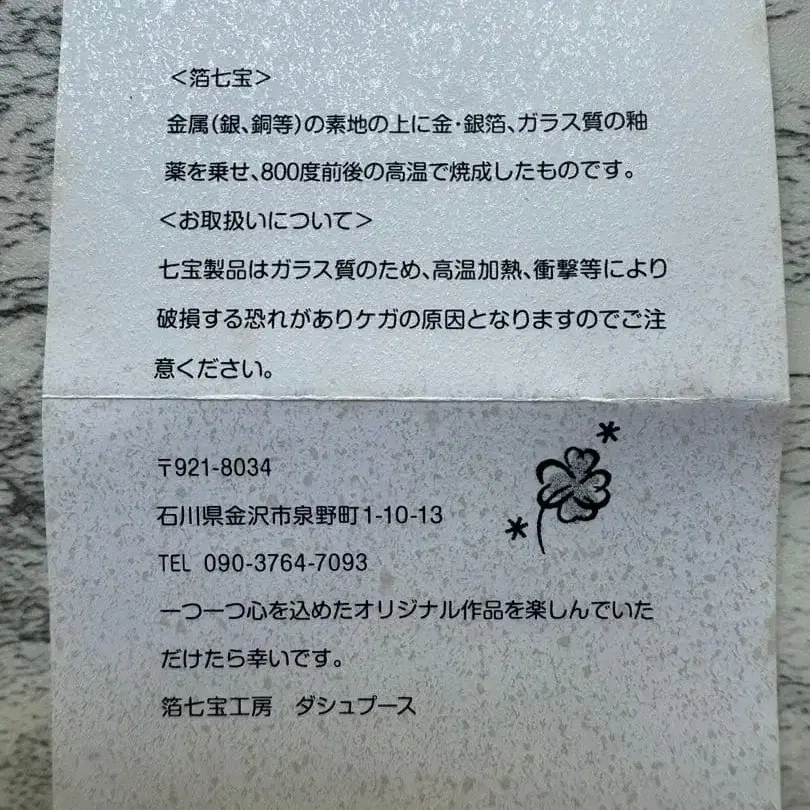 ＜箔七宝＞
金属（銀、銅等）の素地の上に金・銀箔、ガラス質の釉
薬を乗せ、800度前後の高温で焼成したものです。
＜お取扱いについて＞
七宝製品はガラス質のため、高温加熱、衝撃等により
破損する恐れがありケガの原因となりますのでご注
意ください。
〒921-8034
石川県金沢市泉野町1-10-13
TEL 090-3764-7093
一つ一つ心を込めたオリジナル作品を楽しんでいた
だけたら幸いです。
箔七宝工房　ダシュプース